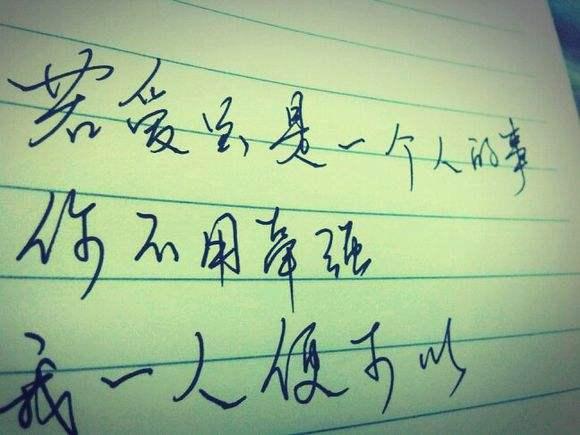 若爱是一个人的事
你不用牵强
我一人便可以